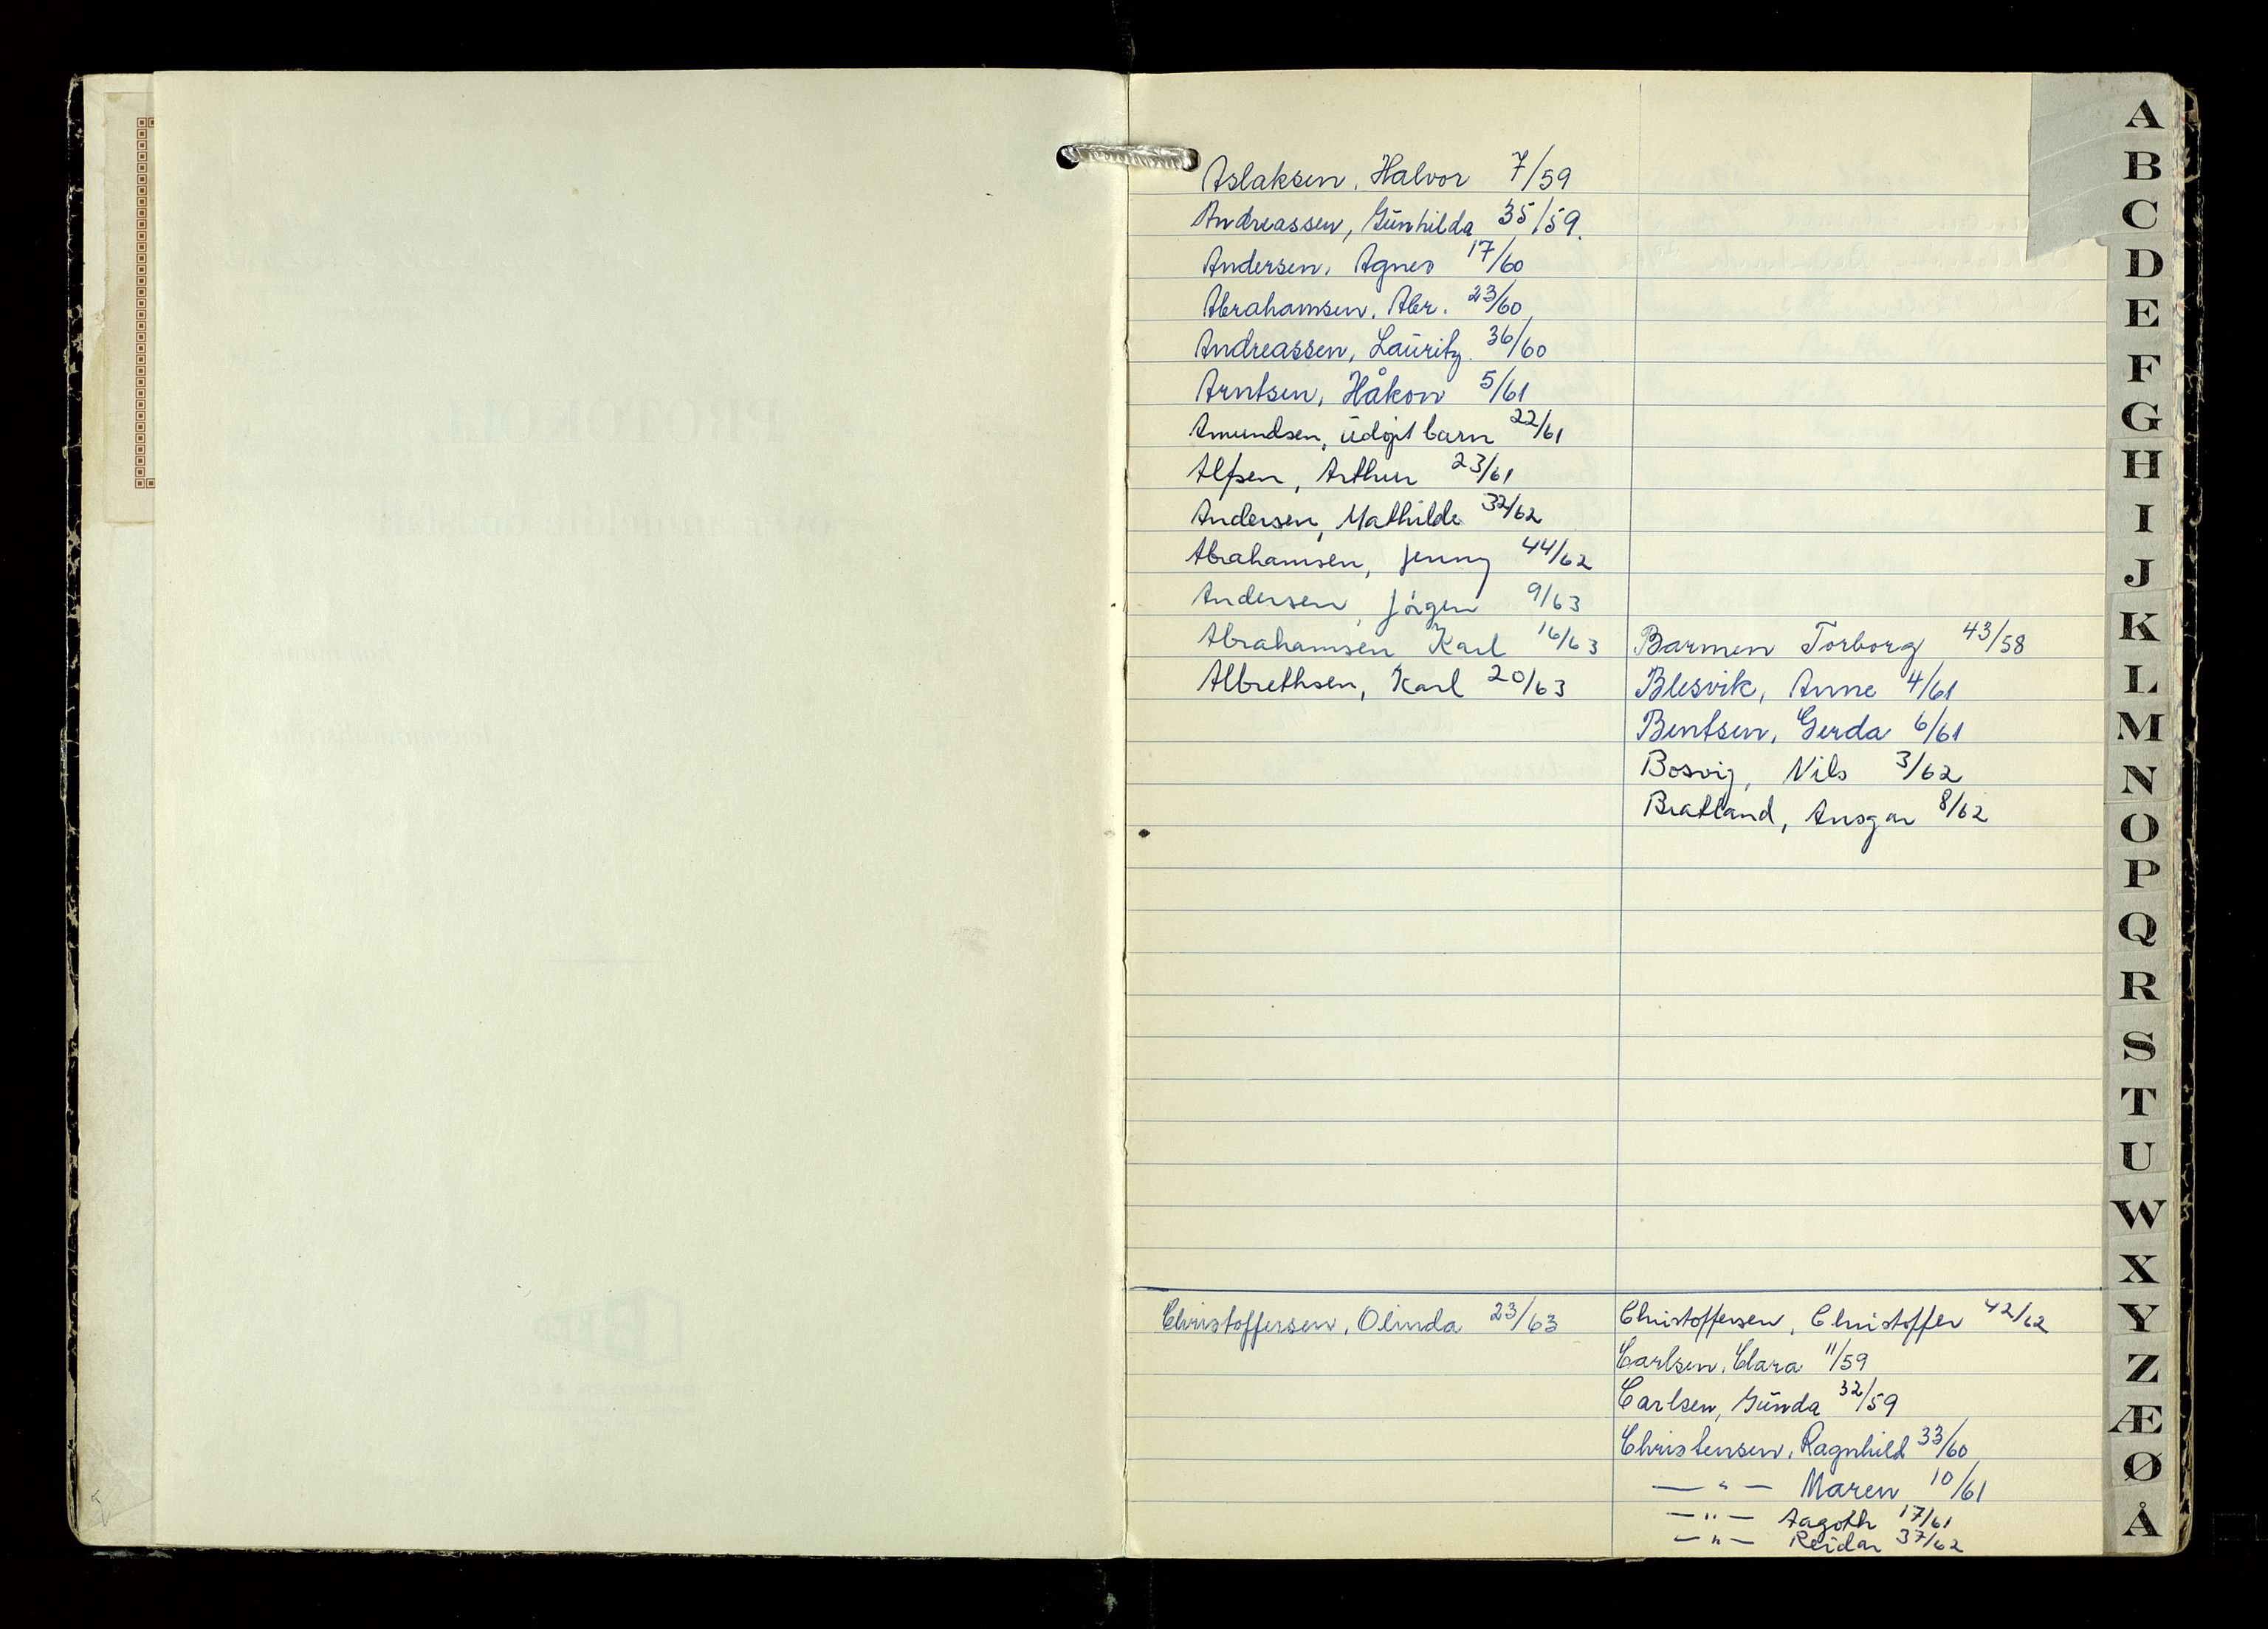 Aslaksen, Halvor 7/59
Andreassen, Gunhilda 35/59.
Andersen, Agnes 17/60
Abrahamsen, Abr. 23/60
Andreassen, Lauritz. 36/60
Arntsen, Håkon 5/61
Amundsen, udøpt barn 22/61
Alfsen, Arthur 23/61
Andersen, Mathilde 32/62
Abrahamsen, Jenny 44/62
Andersen, Jörgen 9/63
Abrahamsen Karl 16/63
Albrethsen, Karl 20/63
Barmen Torborg 43/58
Blesvik, Anne 4/61
Bentsen, Gerda 6/61
Bosvig, Nils 3/62
Bratland, Ansgar 8/62
Christoffersen, Olinda 23/63
Christoffersen, Christoffer 42/62
Carlsen, Clara 11/59
Carlsen, Gunda 32/59
Christensen, Ragnhild 33/60
— " — Maren 10/61
— " — Aagoth 17/61
— " — Reidar 37/62
A
B
C
D
E
F
G
H
I
J
K
L
M
N
O
P
Q
R
S
T
U
W
X
Y
Z
Æ
Ø
Å